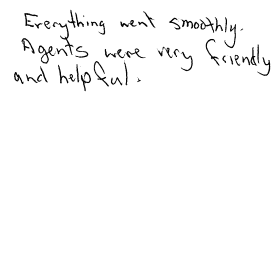 Everything went smoothly.
Agents were very friendly
and helpful.